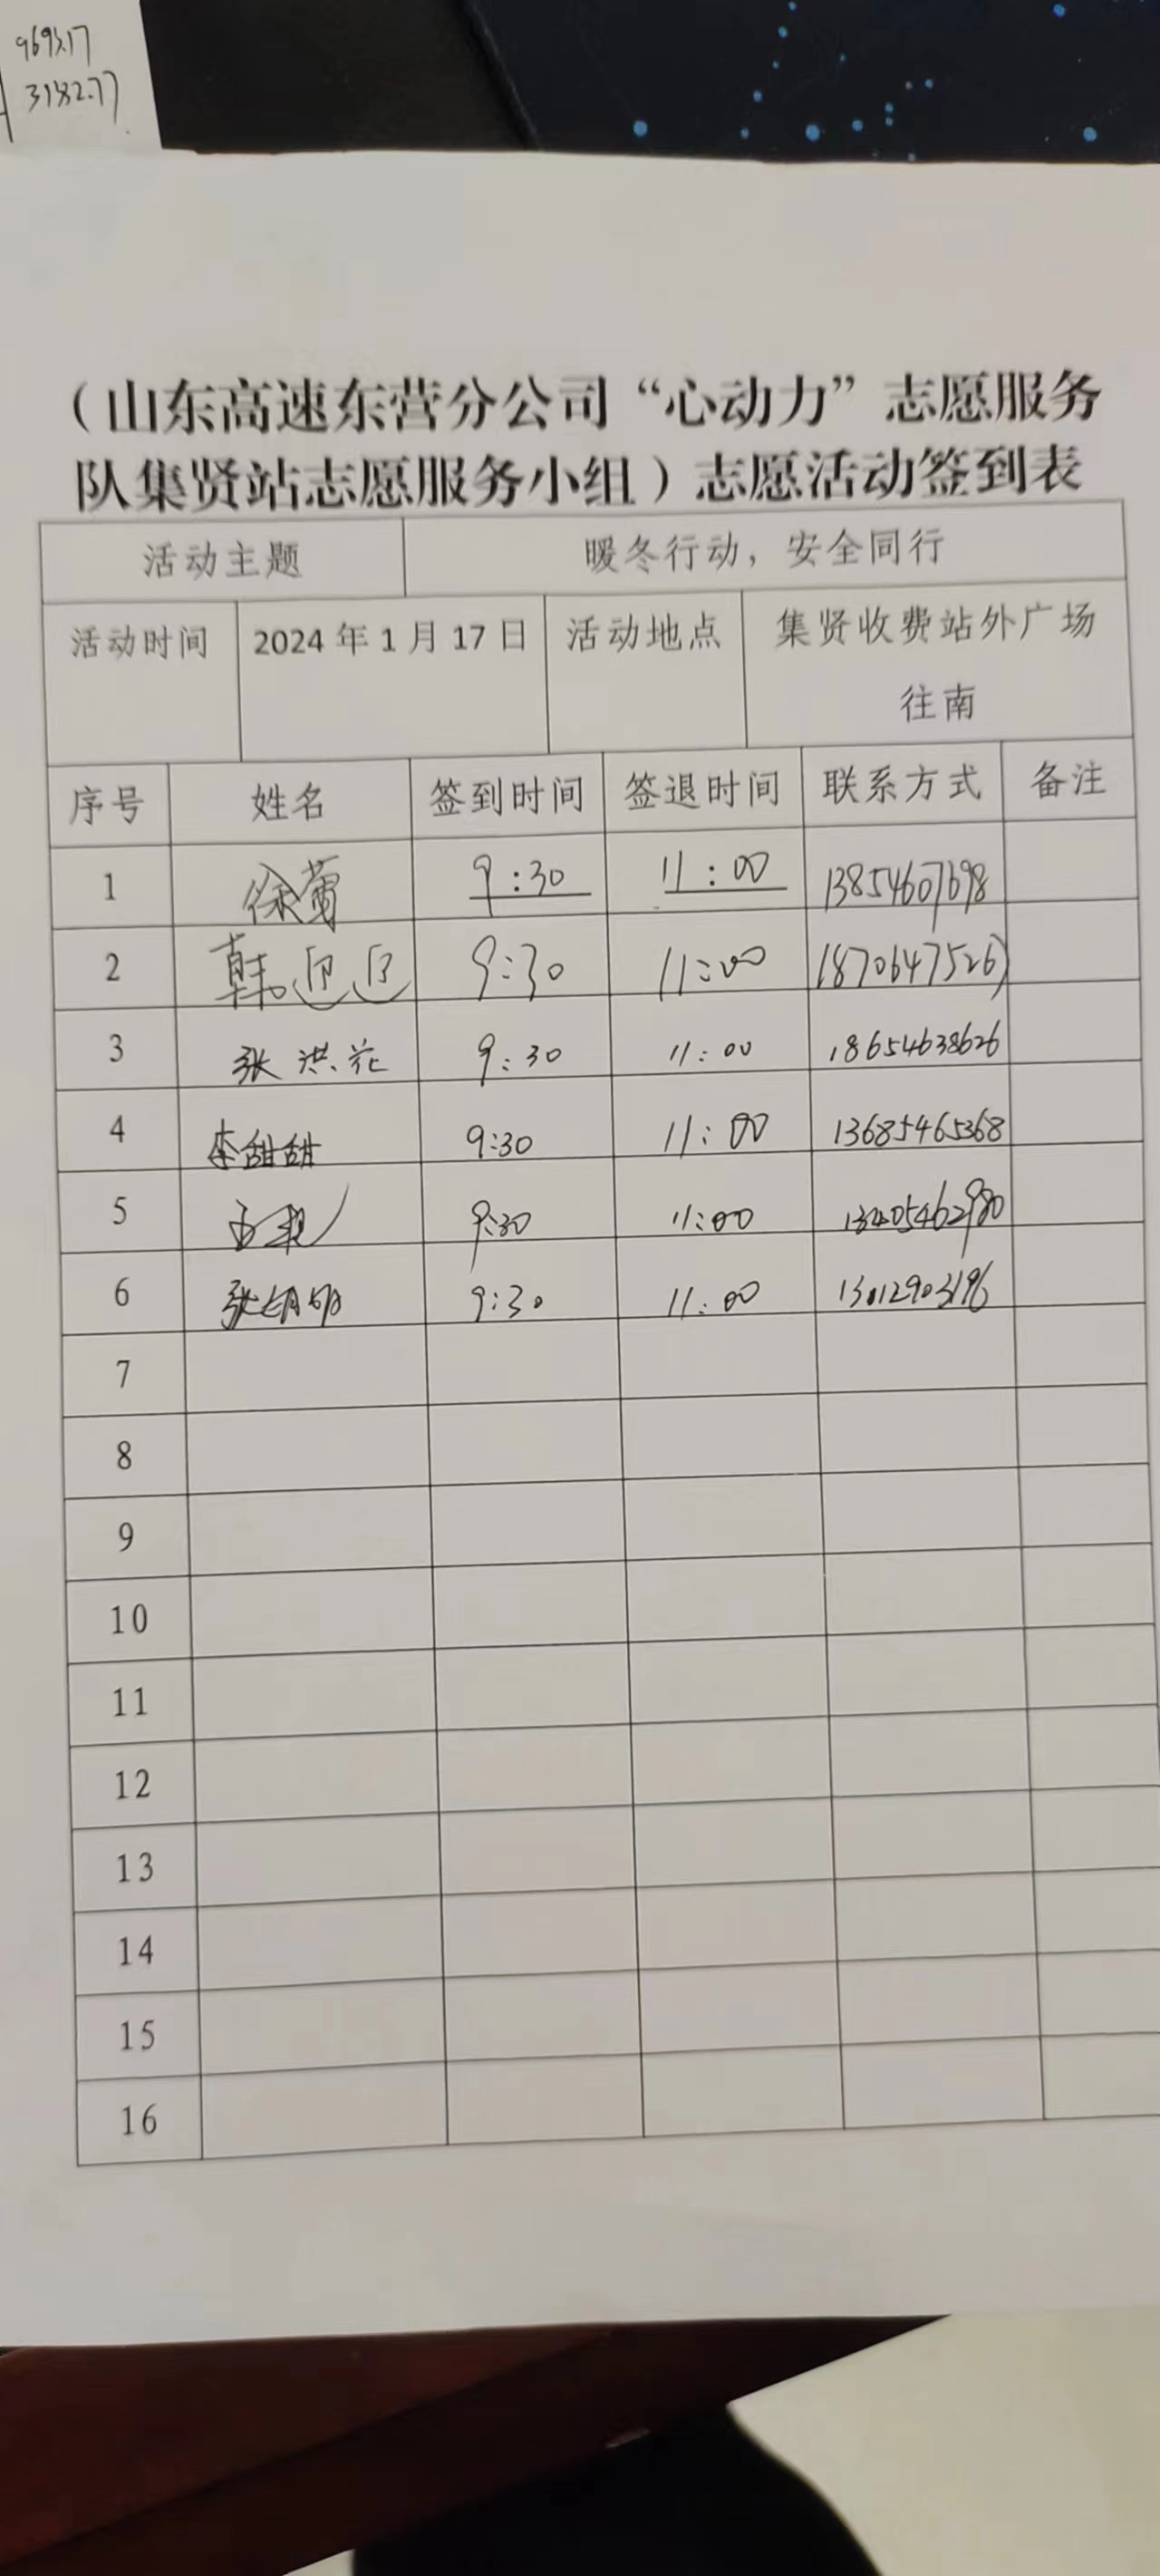 3182.77
（山东高速东营分公司“心动力”志愿服务
队集贤站志愿服务小组）志愿活动签到表
活动主题 暖冬行动，安全同行
活动时间 2024年1月17日 活动地点 集贤收费站外广场
往南
序号 姓名 签到时间 签退时间 联系方式 备注
1 徐 9:30 11:00 13854607698
2 韩 9:30 11:00
3 张洪花 9:30 11:00 18654638626
4 李甜甜 9:30 11:00 13685465368
5 9:30 11:00 13405462980
6 张明明 9:30 11:00 13012903196
7
8
9
10
11
12
13
14
15
16